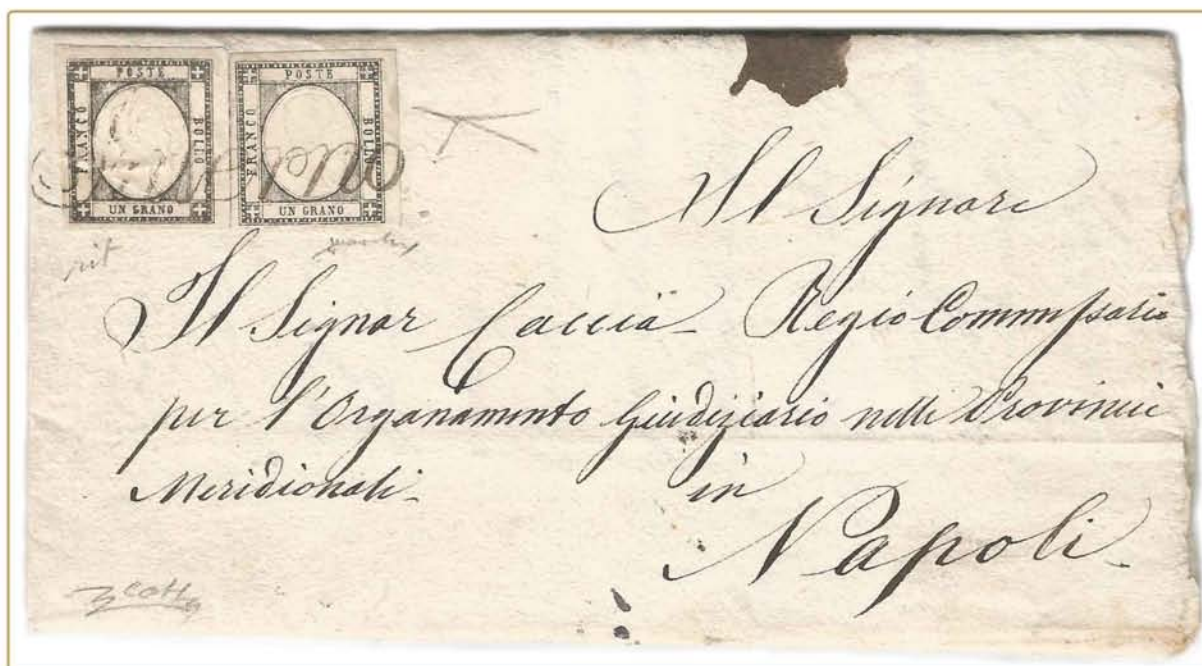 POSTE
FRANCO
BOLLO
UN GRANO
POSTE
FRANCO
BOLLO
UN GRANO
Al Signore
Il Signor Caccia Regio Commissario
per l'Organamento Giudiziario nelle Provincie
Meridionali
in
Napoli